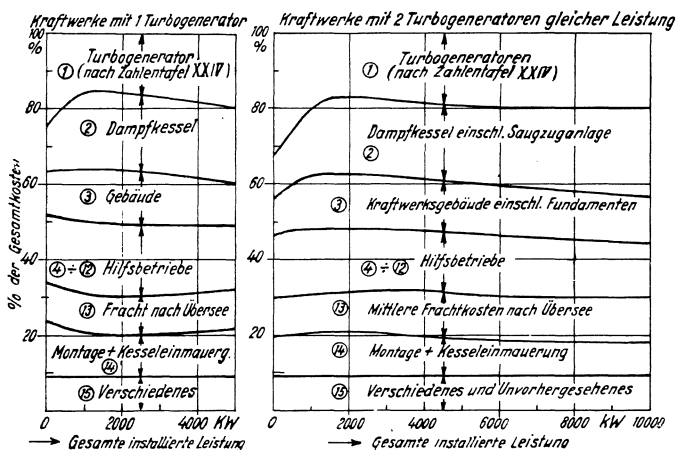 Kraftwerke mit 1 Turbogenerator
100
%
80
60
40
20
% der Gesamtkosten
Turbogenerator
① (nach Zahlentafel XXIV)
② Dampfkessel
③ Gebäude
④ ÷ ⑫ Hilfsbetriebe
⑬ Fracht nach Übersee
Montage + Kesseleinmauerg.
⑭
⑮ Verschiedenes
0 2000 4000 KW
→ Gesamte installierte Leistung
Kraftwerke mit 2 Turbogeneratoren gleicher Leistung
100
%
80
60
40
20
Turbogeneratoren
① (nach Zahlentafel XXIV)
Dampfkessel einschl. Saugzuganlage
②
③ Kraftwerksgebäude einschl. Fundamenten
④ ÷ ⑫ Hilfsbetriebe
⑬ Mittlere Frachtkosten nach Übersee
⑭ Montage + Kesseleinmauerung
⑮ Verschiedenes und Unvorhergesehenes
0 2000 4000 6000 8000 KW 10000
→ Gesamte installierte Leistung